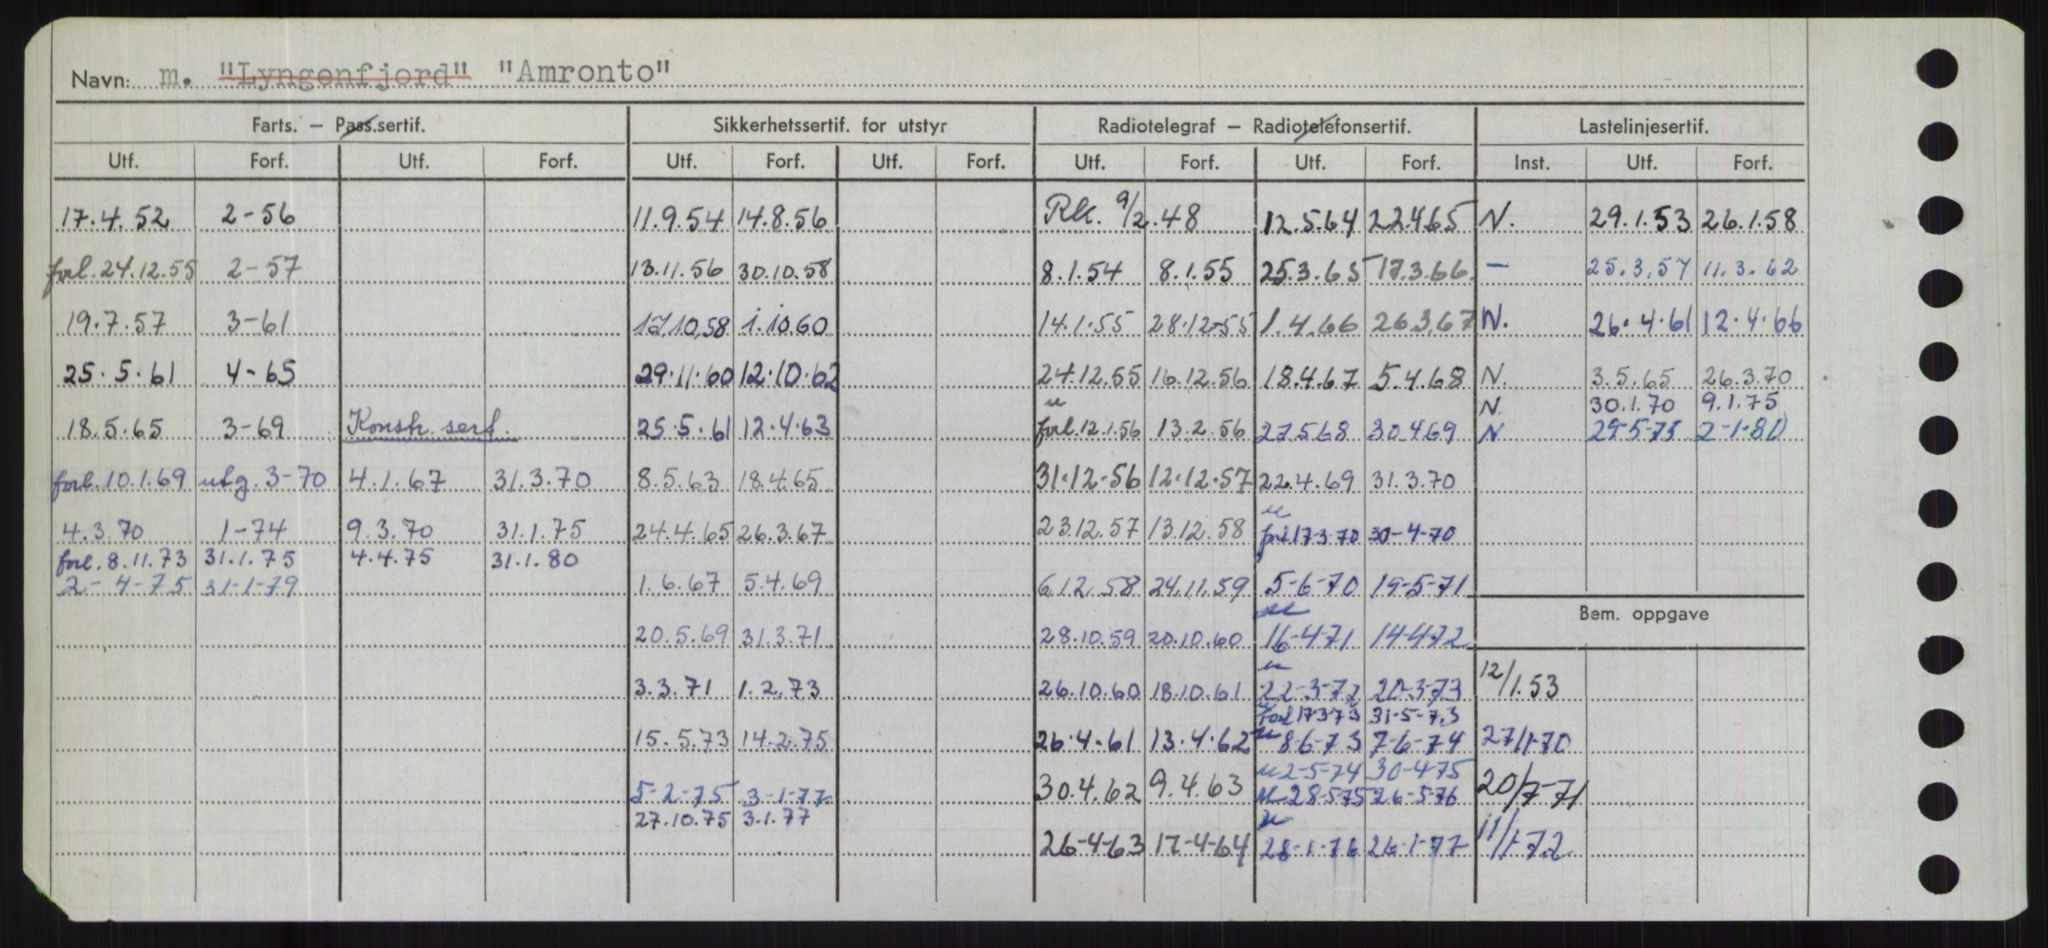 Navn: m. "Lyngenfjord" "Amronto"
Farts. — Pass.sertif. Sikkerhetssertif. for utstyr Radiotelegraf — Radiotelefonsertif. Lastelinjesertif.
Utf. Forf. Utf. Forf. Utf. Forf. Utf. Forf. Utf. Forf. Utf. Forf. Inst. Utf. Forf.
17.4.52 2-56 11.9.54 14.8.56 Rk. 9/2.48 12.5.64 22.4.65 N. 29.1.53 26.1.58
forl. 24.12.55 2-57 13.11.56 30.10.58 8.1.54 8.1.55 25.3.65 17.3.66 — 25.3.57 11.3.62
19.7.57 3-61 17.10.58 1.10.60 14.1.55 28.12-55 1.4.66 26.3.67 N. 26.4.61 12.4.66
25.5.61 4-65 29.11.60 12.10.62 24.12.55 16.12.56 18.4.67 5.4.68 N. 3.5.65 26.3.70
N. 30.1.70 9.1.75
18.5.65 3-69 Konstr. sert. 25.5.61 12.4.63 forl. 12.1.56 13.2.56 27.5.68 30.4.69 N 29-5-75 2-1-80
forl. 10.1.69 utg. 3-70 4.1.67 31.3.70 8.5.63 18.4.65 31.12.56 12.12.57 22.4.69 31.3.70
4.3.70 1-74 9.3.70 31.1.75 24.4.65 26.3.67 23.12.57 13.12.58 forl 17-3-70 30-4-70
forl. 8.11.73 31.1.75 4.4.75 31.1.80
2-4-75 31-1-79 1.6.67 5.4.69 6.12.58 24.11.59 5-6-70 19-5-71
Bem. oppgave
20.5.69 31.3.71 28.10.59 20.10.60 16-4-71 14-4-72
3.3.71 1.2.73 26.10.60 18.10.61 22-3-72 20-3-73 12/1.53
Forl 17-3-73 31-5-73
15.5.73 14.2.75 26.4.61 13.4.62 8-6-73 7-6-74 27/1-70
2-5-74 30-4-75
5-2-75 3-1-77 30.4.62 9.4.63 28-5-75 26-5-76 20/7-71
27.10.75 3.1.77
26-4-63 17-4-64 28-1-76 26-1-77 11/1-72